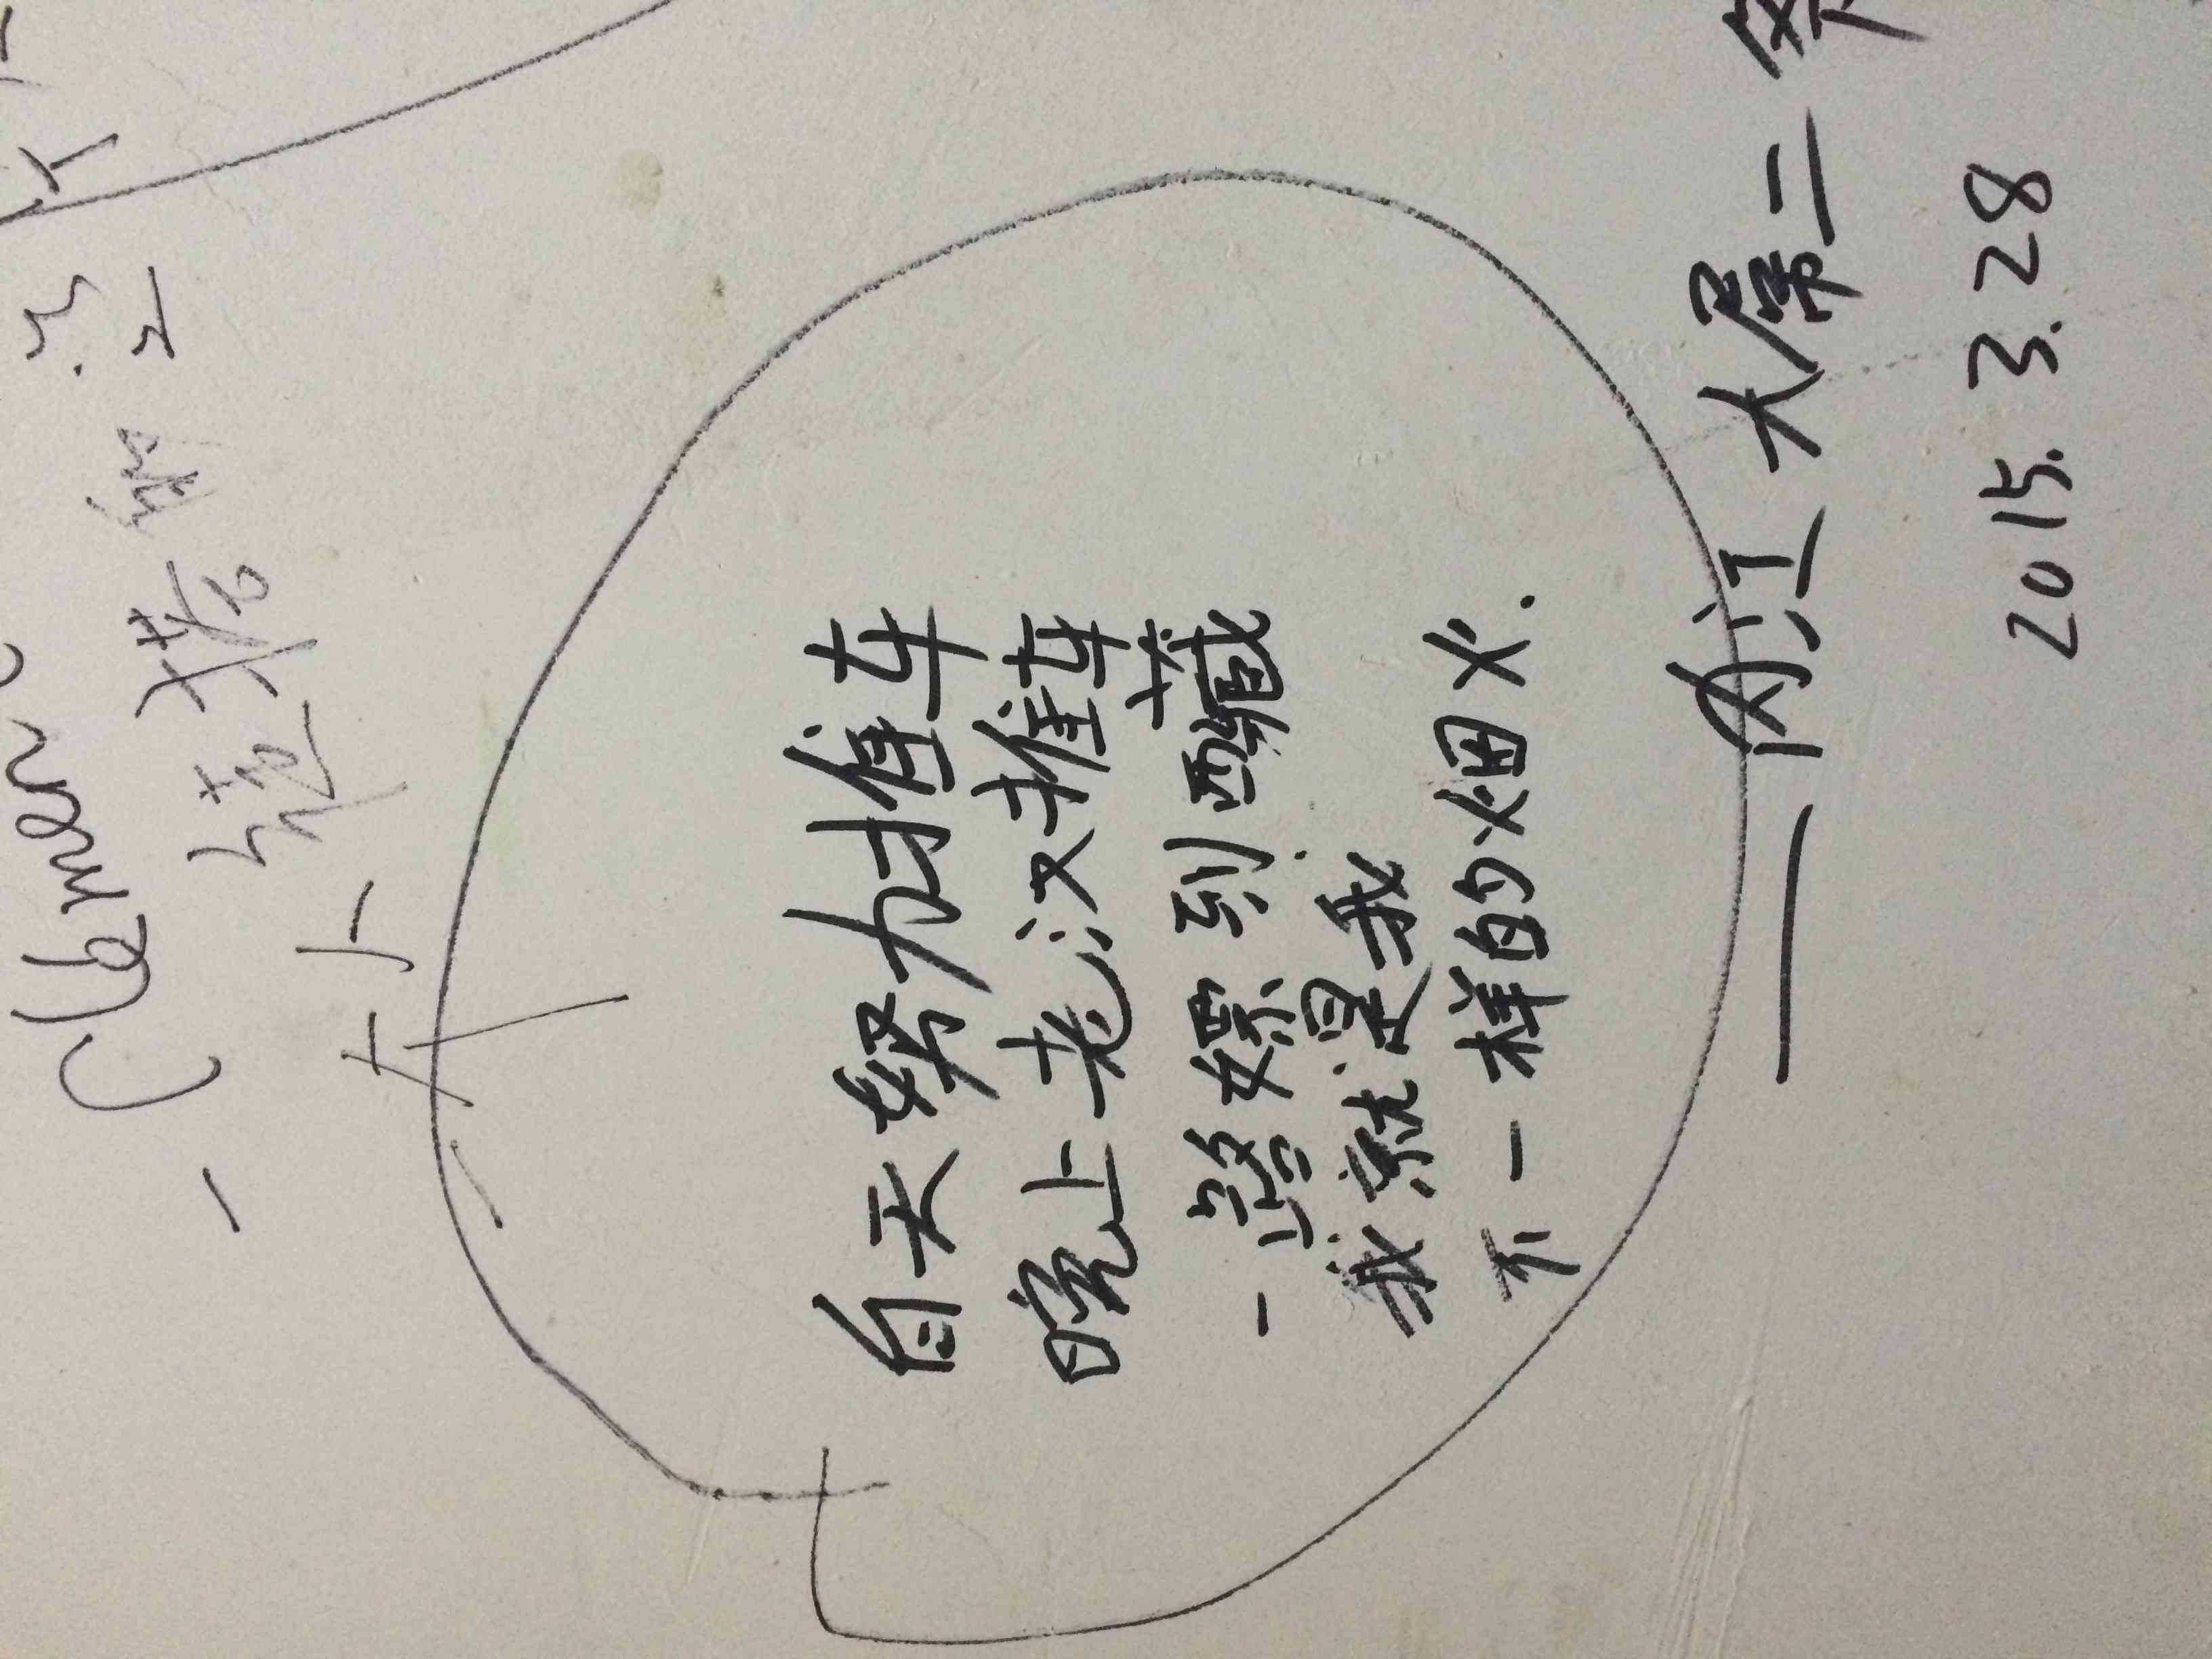 - Clémen
一个人徒搭的
白天努力推车
晚上老汉推车
一路嫖到西藏
我就是我
不一样的烟火.
——内江大屌二爷
2015.3.28